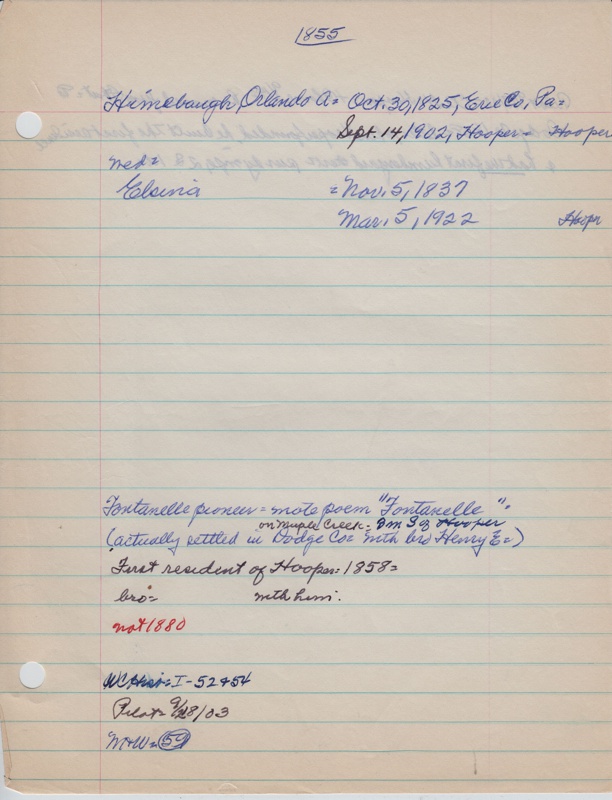 1855
Himebaugh, Orlando A= Oct. 30, 1825, Erie Co., Pa=
Sept. 14, 1902, Hooper= Hooper
med=
Elsina = Nov. 5, 1837
Mar. 5, 1922 Hoopr
Fontanelle pioneer= wrote poem "Fontanelle".
on Maple Creek= 3m S of Hooper
(actually settled in Dodge Co= with bro Henry E=)
First resident of Hooper= 1858=
bro= with him.
not 1880
WCHist= I-52&54
Pilot= 9/28/03
M&W= 59